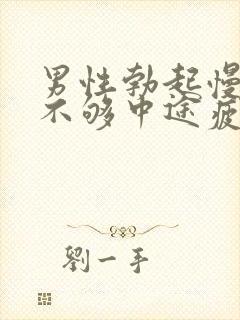 男性勃起慢
不够中途疲
劉一手